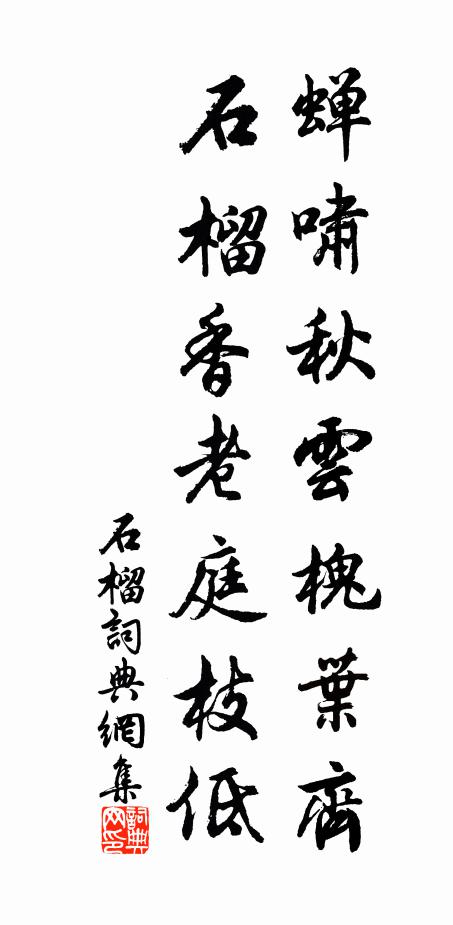 蝉啸秋雲槐葉齊
石榴香老庭枝低
石榴詞典網集
詞典网印